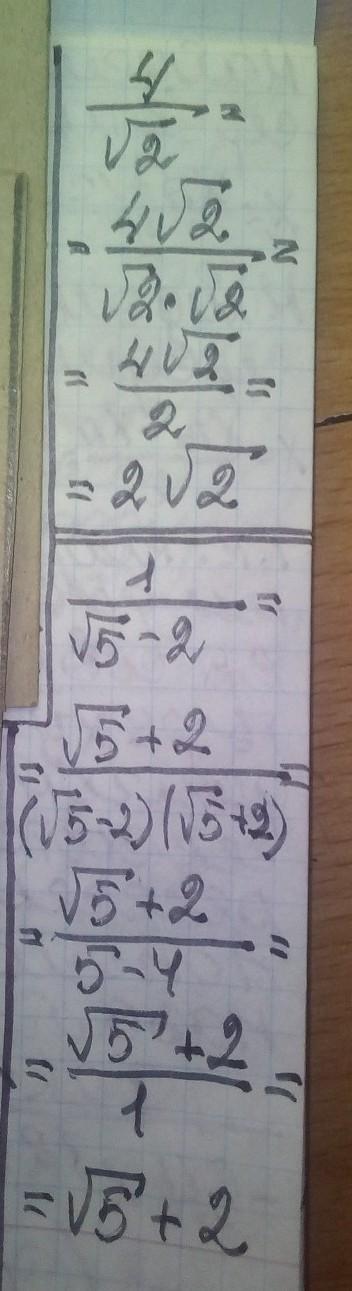 4/√2 =
= 4√2/(√2·√2) =
= 4√2/2 =
= 2√2
1/(√5-2) =
= (√5+2)/((√5-2)(√5+2)) =
= (√5+2)/(5-4) =
= (√5+2)/1 =
= √5+2